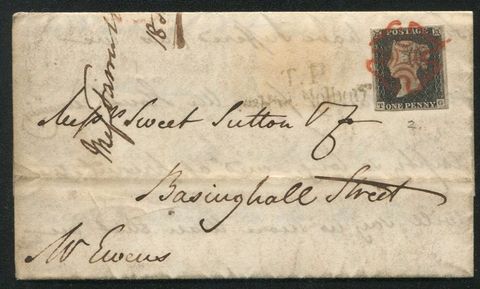 POSTAGE
ONE PENNY
T G
T.P
2.
Messrs Sweet Sutton &
Basinghall Street
Mr Ewens